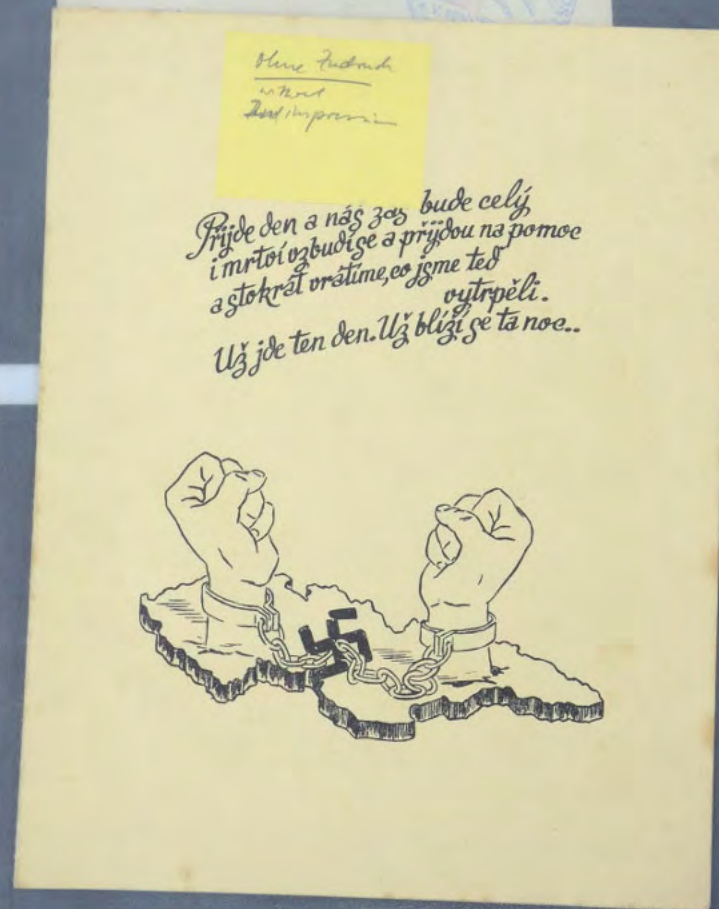 Ohne
without
Přijde den a náš zas bude celý
i mrtví vzbudí se a přijdou na pomoc
a stokrát vrátíme, co jsme teď
vytrpěli.
Už jde ten den. Už blíží se ta noc..